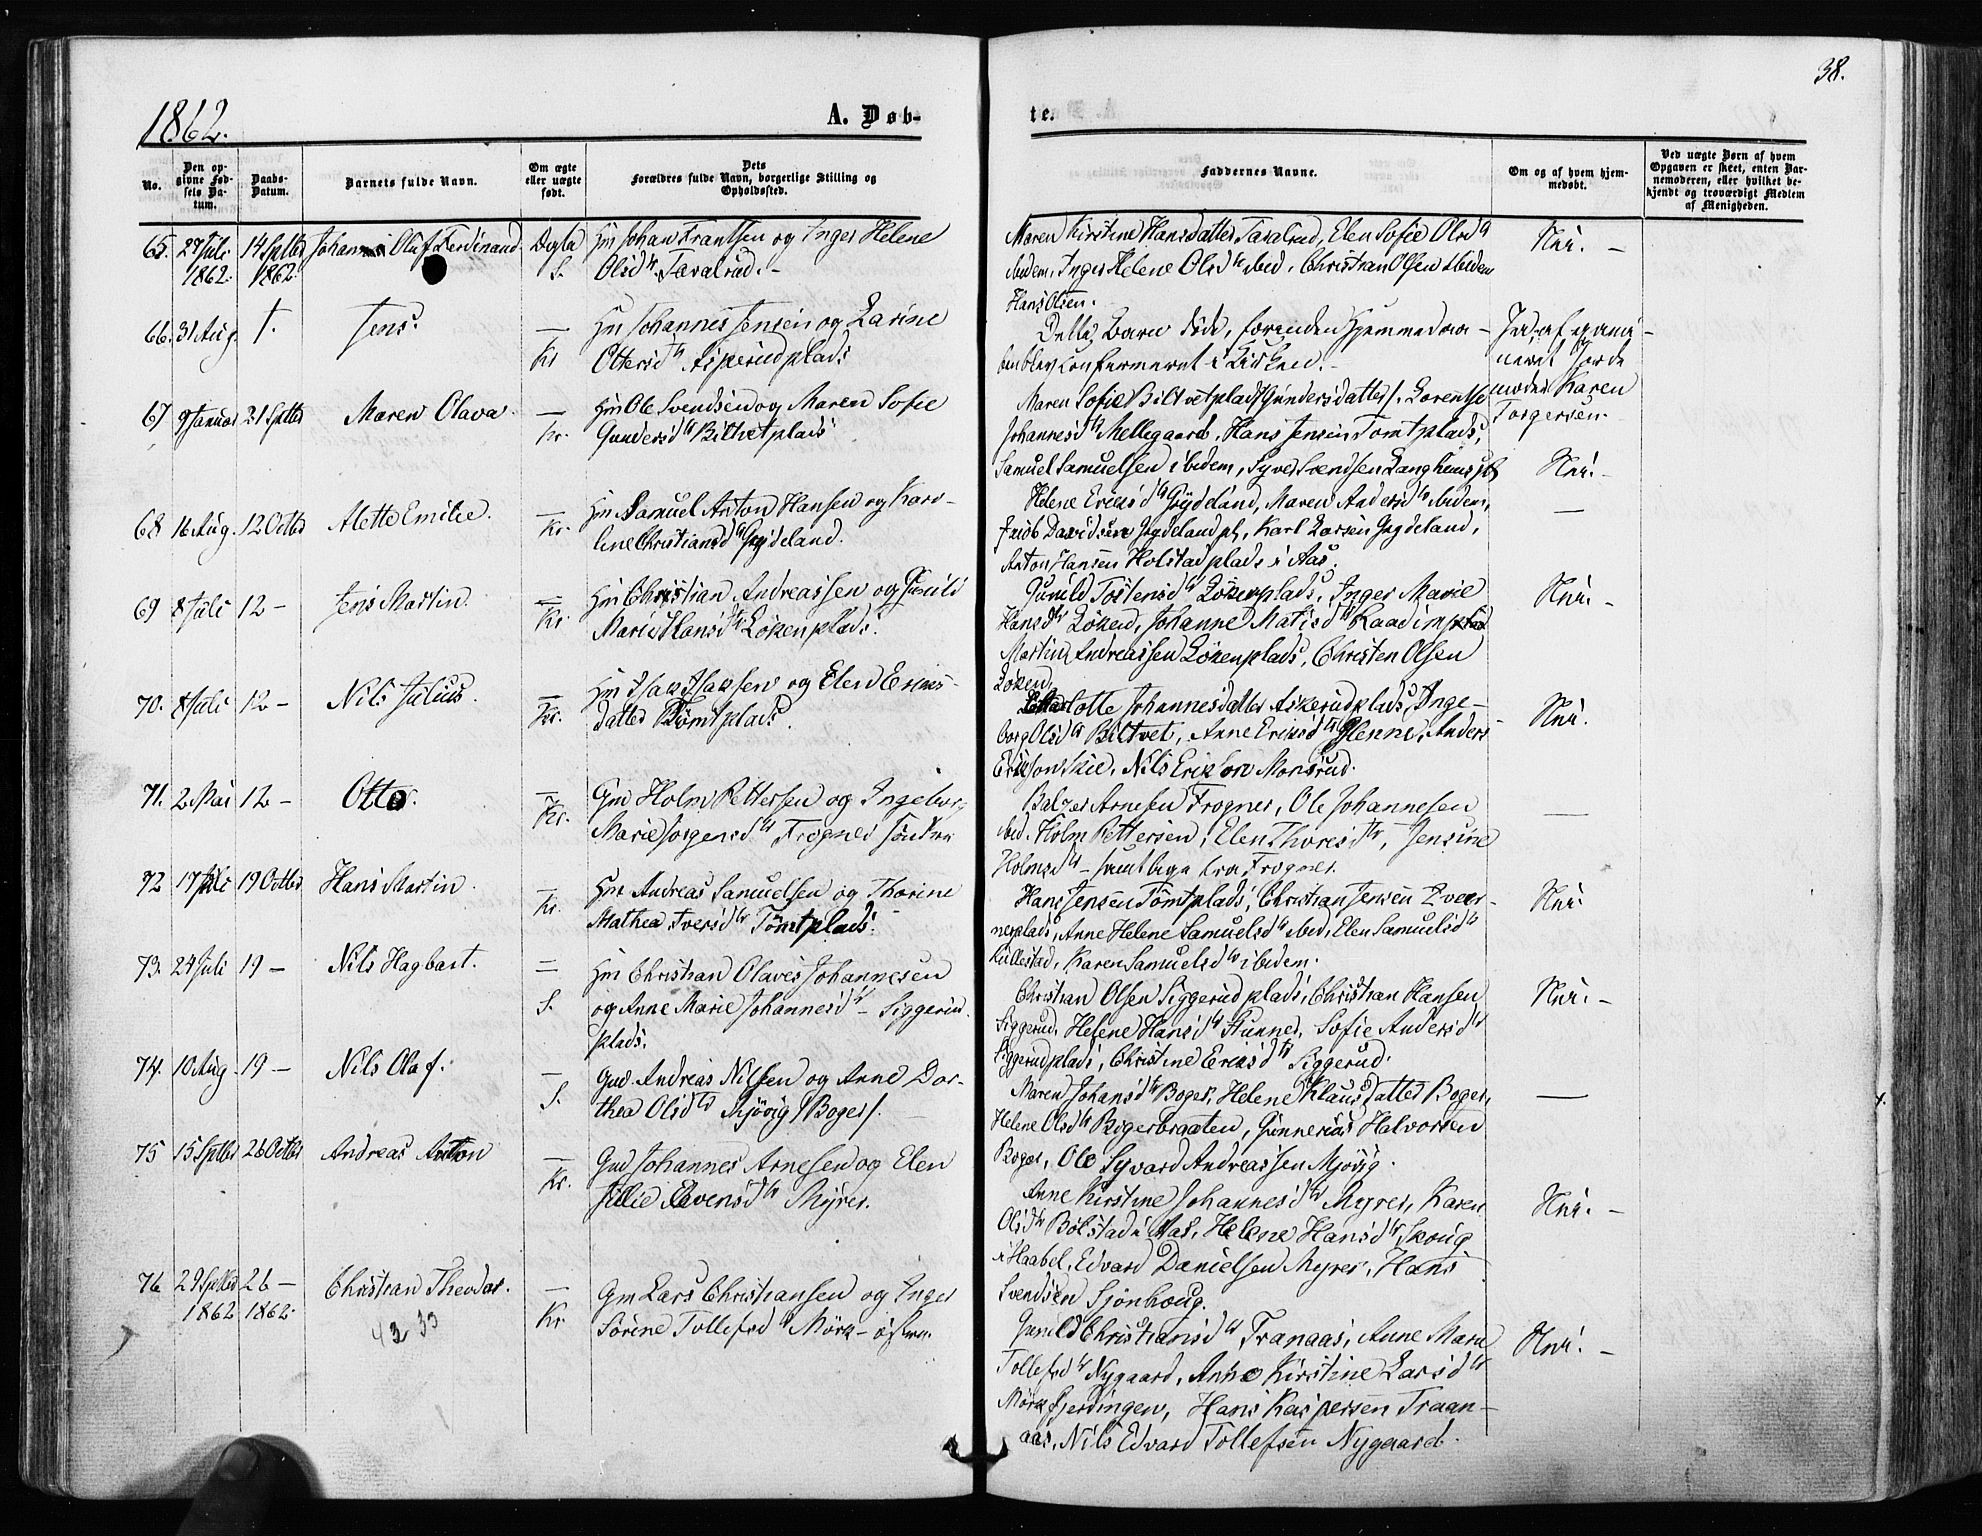 38.
1862.
A. Døb-
te.
No.
Den op-
givne Fød-
sels Da-
tum.
Daabs-
Datum.
Barnets fulde Navn.
Om ægte
eller uægte
født.
Dets
Forældres fulde Navn, borgerlige Stilling og
Opholdssted.
Faddernes Navne.
Om og af hvem hjem-
medøbt.
Ved uægte Børn af hvem
Opgaven er skeet, enten Bar-
nemoderen, eller hvilket be-
kjendt og troværdigt Medlem
af Menigheden.
65. 27 Juli 14 Septbr Olaf Ferdinand Hm Johan Frantsen og Inger Helene
1862. 1862. S. Olsdtr Taralrud. -
Maren Kirstine Hansdatter Taralrud, Elen Sofie Olsdtr
ibidem, Inger Helene Olsdtr ibid, Christian Olsen ibidem
Hans Olsen.
66. 31 Aug. †. Jens. — Hm Johannes Jensen og Larine
Kr Ottersdtr Askerudplads
Dette Barn døde, forinden Hjemmedaa-
ben blev confirmeret i Kirken. -
Ja, af exami-
neret Jorde
moder Karen
Torgersen.
67 9 Januar 21 Septbr Maren Olava. — Hm Ole Svendsen og Maren Sofie
Kr. Gundersdtr Biltvetplads
Maren Sofie Biltvetplads /Gundersdatter/. Lorentse
Johannesdtr Mellegaard, Hans Jensen Tomtplads,
Samuel Samuelsen ibidem, Syver Svendsen
68 16 Aug. 12 Octbr Alette Emilie. — Hm Samuel Anton Hansen og Karo-
Kr. line Christiansdtr Gydeland.
Helene Ericsdtr Gydeland, Maren Andersdtr ibidem,
Davidsen Gydeland pl, Karl Larsen Gydeland,
Anton Hansen Holstadplads i Aas.
69 8 Juli 12 - Jens Martin. Hm Christian Andreassen og Gunild
Kr. Marie Hansdtr Løkenplads.
Gunild Tostensdtr Løkenplads, Inger Marie
Hansdtr Løken, Johanne Matisdtr
Martin Andreassen Løkenplads, Christen Olsen
Løken.
70. 8 Juli 12 - Nils Julius. — Hm Isak Isaksen og Elen Erics-
Kr. datter Tomtplads.
Johannesdatter Askerudplads, Inge-
borg Olsdtr Biltvet, Anne Eriksdtr Glenne, Anders
Erikson Skie, Nils Erikson Monsrud.
71. 2 Mai 12 - Otto. — Gm Holm Pettersen og Ingeborg
Kr. Marie Jorgensdtr Frogner søndre
Balzer Arnesen Frogner, Ole Johannesen
ibid. Holm Pettersen, Elen Thoresdtr, Jensine
Holmsdtr - samtlige fra Frogner.
72 17 Juli 19 Octbr Hans Martin. — Hm Andreas Samuelsen og Thorine
Kr. Mathea Iversdtr Tömtplads.
Hans Jensen Tömtplads, Christian Jensen
Anne Helene Samuelsdtr ibid, Elen Samuelsdtr
Kullestad, Karen Samuelsdtr ibidem.
73. 24 Juli 19 - Nils Hagbart. = Hm Christian Olaves Johannesen
S. og Anne Marie Johannesdtr - Siggerud
plads.
Christian Olsen Siggerudplads, Christian Hansen
Siggerud, Helene Hansdtr Sofie Andersdtr
Siggerudplads, Christine Ericsdtr Siggerud.
74. 10 Aug 19 — Nils Olaf. — Gm. Andreas Nilsen og Anne Dor-
S. thea Olsdtr Mjövig /Boger/.
Maren Johansdtr Boger, Helene Klausdatter Boger,
Helene Olsdtr Bogerbraaten, Gunnerius Halvorsen
Boger, Ole Syvard Andreassen Mjövig.
75 15 Septbr 26 Octbr Andreas Anton — Gm Johannes Arnesen og Elen
Kr. Julie Evensdtr Myrer.
Anne Kirstine Johannesdtr Myrer, Karen
Olsdtr Bölstad i Aas, Helene Hansdtr Skoug
i Haabel, Edvard Danielsen Myrer, Hans
Svendsen Sjönhoug.
76 29 Septbr 26 — Christian Theodor. — Gm Lars Christiansen og Inger
1862 1862. Kr Sörine Tollefsdtr Mörk - östre.
Gunild Christiansdtr Tranaas, Anne Marie
Tollefsdtr Nygaard, Anne Kirstine Larsdtr
Mörk Gjerdingen, Hans Kaspersen Traan-
aas, Nils Edvard Tollefsen Nygaard.